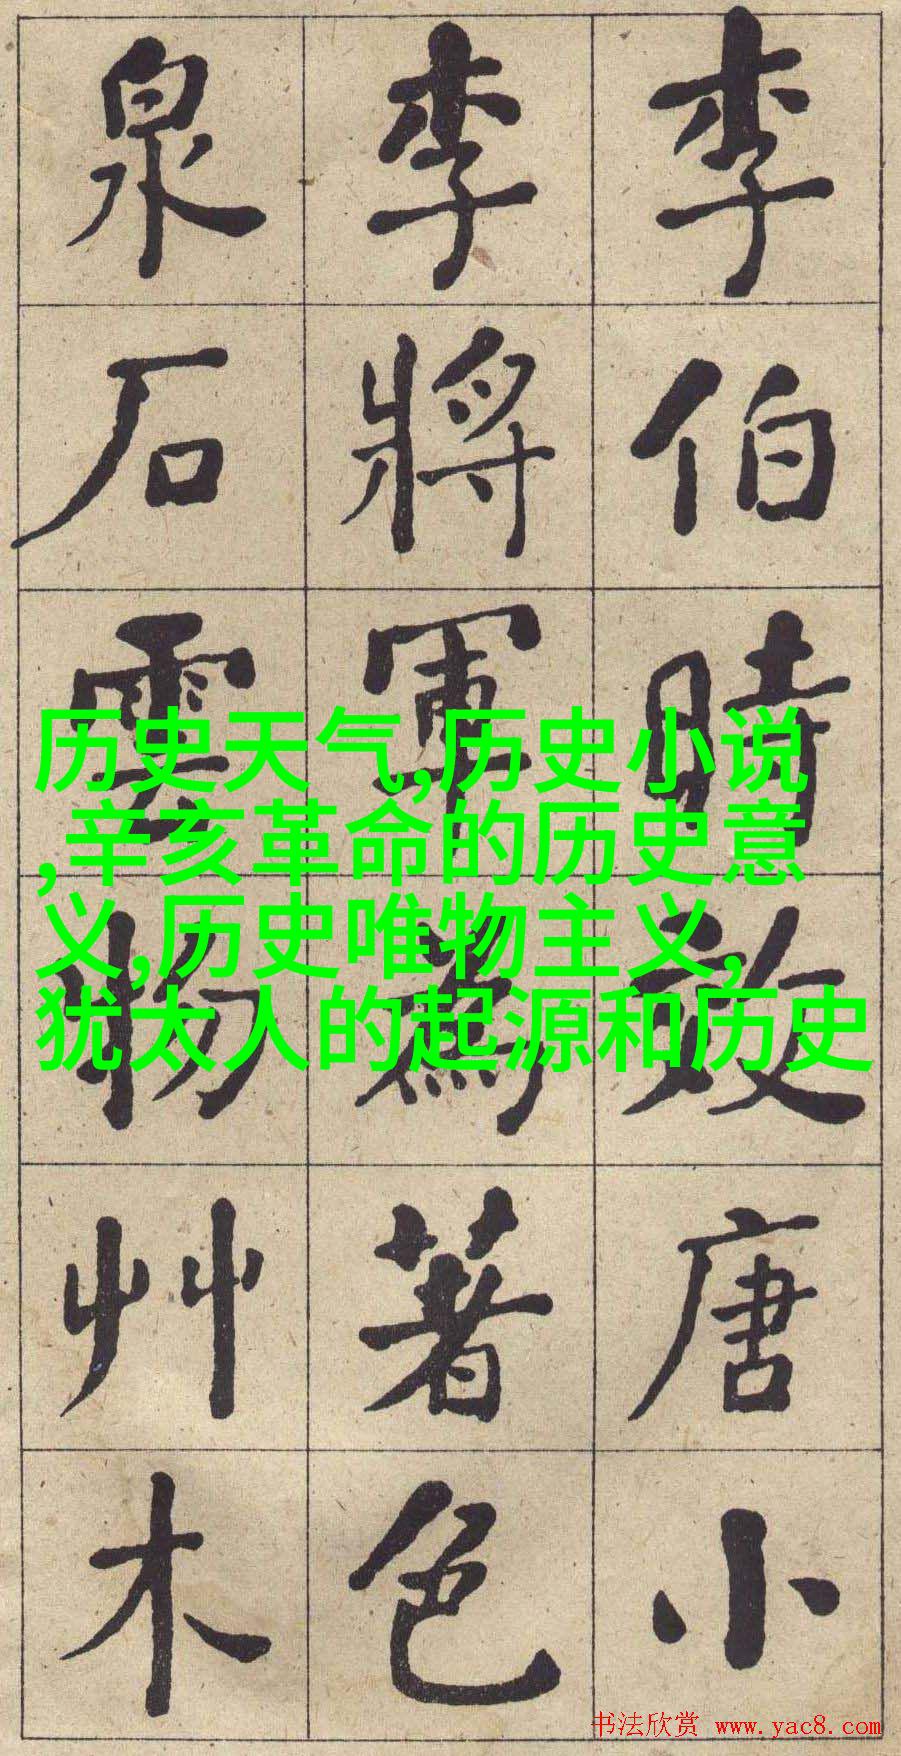 李伯時效唐小
李將軍為著色
泉石雲物艸木
历史天气,历史小说
,辛亥革命的历史意
义,历史唯物主义,
犹太人的起源和历史
书法欣赏 www.yac8.com